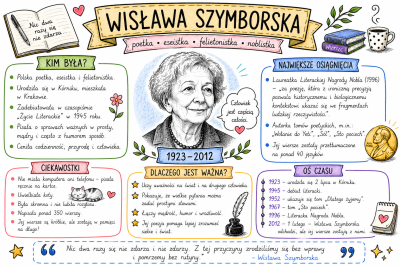 Nic dwa
razy się
nie zdarza
WISŁAWA SZYMBORSKA
poetka • eseistka • felietonistka • noblistka
KIM BYŁA?
• Polska poetka, eseistka i felietonistka.
• Urodziła się w Kórniku, mieszkała
w Krakowie.
• Zadebiutowała w czasopiśmie
„Życie Literackie” w 1945 roku.
• Pisała o sprawach ważnych w prosty,
mądry i często z humorem sposób.
• Ceniła codzienność, przyrodę i człowieka.
Człowiek
jest zagłębią
celem.
1923-2012
NAJWIĘKSZE OSIĄGNIĘCIA
• Laureatka Literackiej Nagrody Nobla (1996)
– „za poezję, która z ironiczną precyzją
pozwala historycznemu i biologicznemu
kontekstowi ukazać się we fragmentach
ludzkiej rzeczywistości”.
• Autorka tomów poetyckich, m.in.:
„Wołanie do Yeti”, „Sól”, „Sto pociech”
• Jej wiersze zostały przetłumaczone
na ponad 40 języków.
CIEKAWOSTKI
• Nie miała komputera ani telefonu – pisała
ręcznie na kartce.
• Uwielbiała koty.
• Była skromna i nie lubiła rozgłosu.
• Napisała ponad 350 wierszy.
• Jej wiersze są krótkie, ale zostają w pamięci
na długo!
DLACZEGO JEST WAŻNA?
• Uczy uważności na świat i na drugiego człowieka.
• Pokazuje, że wielkie pytania można
zadać prostymi słowami.
• Łączy mądrość, humor i wrażliwość.
• Jej poezja pomaga lepiej zrozumieć
siebie i świat.
OŚ CZASU
1923 – urodziła się 2 lipca w Kórniku
1945 – debiut literacki
1952 – ukazuje się tom „Dlatego żyjemy”
1967 – tom „Sto pociech”
1996 – Literacka Nagroda Nobla
2012 – 1 lutego – Wisława Szymborska
odchodzi, ale jej wiersze zostają z nami.
Nic dwa razy się nie zdarza i nie zdarzy. Z tej przyczyny zrodziliśmy się bez wprawy
i pomrzemy bez rutyny.
– Wisława Szymborska